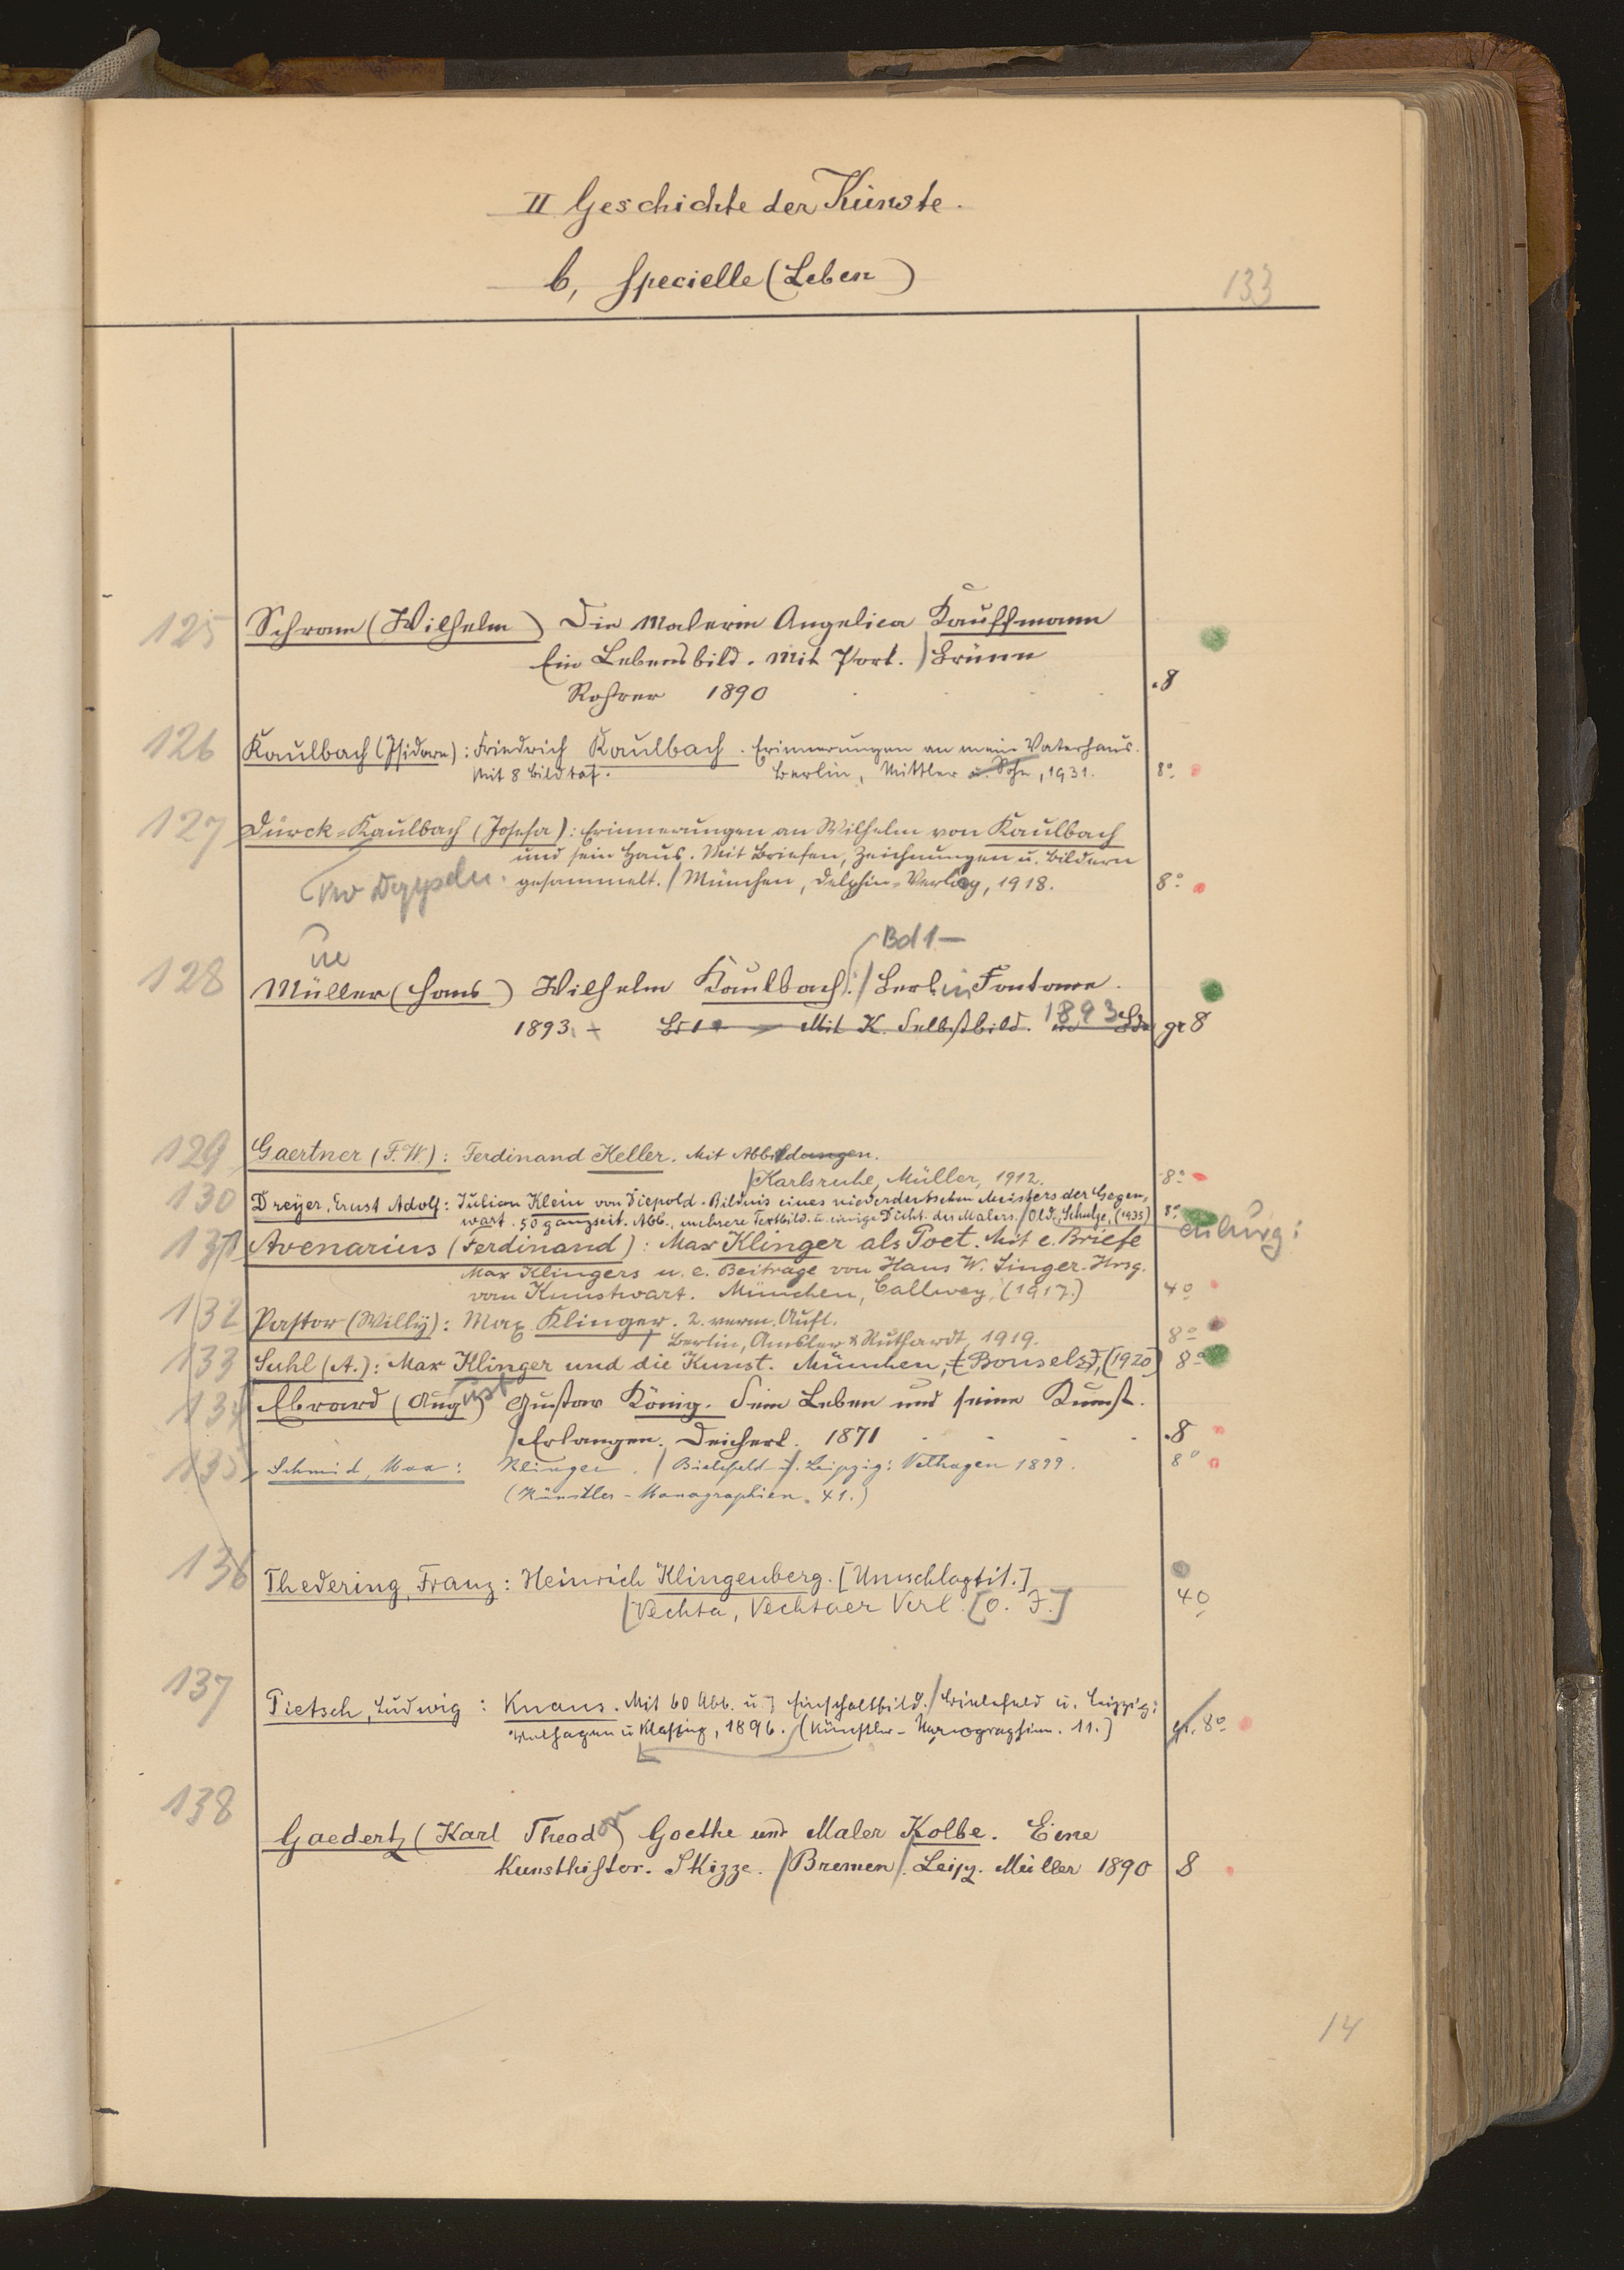 II Geschichte der Künste.
b, Specielle (Leben)
133
125 Schram (Wilhelm) Die Malerin Angelica Kauffmann
Ein Lebensbild. Mit Port. / Brünn
Rohrer 1890 . 8
126 Kaulbach (Isidore): Friedrich Kaulbach. Erinnerungen an mein Vaterhaus.
Mit 8 Bildtaf. Berlin, Mittler u. Sohn, 1931. 8°
127 Dürck-Kaulbach (Josefa): Erinnerungen an Wilhelm von Kaulbach
und sein Haus. Mit Briefen, Zeichnungen u. Bildern
gesammelt. / München, Delphin-Verlag, 1918. 8°
ue
Bd 1 –
128 Müller (Hans) Wilhelm Kaulbach. / Berlin Fontane.
1893. + Bd 1 Mit K. Selbstbild. 1893 gr 8
129 Gaertner (F. W.): Ferdinand Keller. Mit Abbildungen.
/ Karlsruhe, Müller, 1912. 8°
130 Dreyer, Ernst Adolf: Julian Klein von Diepold. Bildnis eines niederdeutschen Meisters der Gegen-
wart. 50 ganzseit. Abb., mehrere Textbild. u. einige Dicht. des Malers. / Old., Schulze, (1935) 8°
enburg:
131 Avenarius (Ferdinand): Max Klinger als Poet. Mit e. Briefe
Max Klingers u. e. Beitrage von Hans W. Singer. Hrsg.
vom Kunstwart. München, Callwey, (1917.) 4°
132 Pastor (Willy): Max Klinger. 2. verm. Aufl.
/ Berlin, Amsler & Ruthardt, 1919. 8°
133 Suhl (A.): Max Klinger und die Kunst. München, (Bonsels), (1920) 8°
134 Ebrard (August) Gustav König. Sein Leben und seine Kunst.
/ Erlangen. Deichert. 1871 . 8
135 Schmid, Max: Klinger. / Bielefeld u. Leipzig: Velhagen 1899. 8°
(Künstler-Monographien. 41.)
136 Thedering, Franz: Heinrich Klingenberg. [Umschlagtit.]
[Vechta, Vechtaer Verl. [o. J.] 4°
137 Pietsch, Ludwig: Knaus. Mit 60 Abb. u. 3 Einschaltbild. / Bielefeld u. Leipzig:
Velhagen u Klasing, 1896. (Künstler-Monographien. 11.) gr. 8°
138 Gaedertz (Karl Theodor) Goethe und Maler Kolbe. Eine
Kunsthistor. Skizze. / Bremen /. Leipz. Müller 1890 8
14